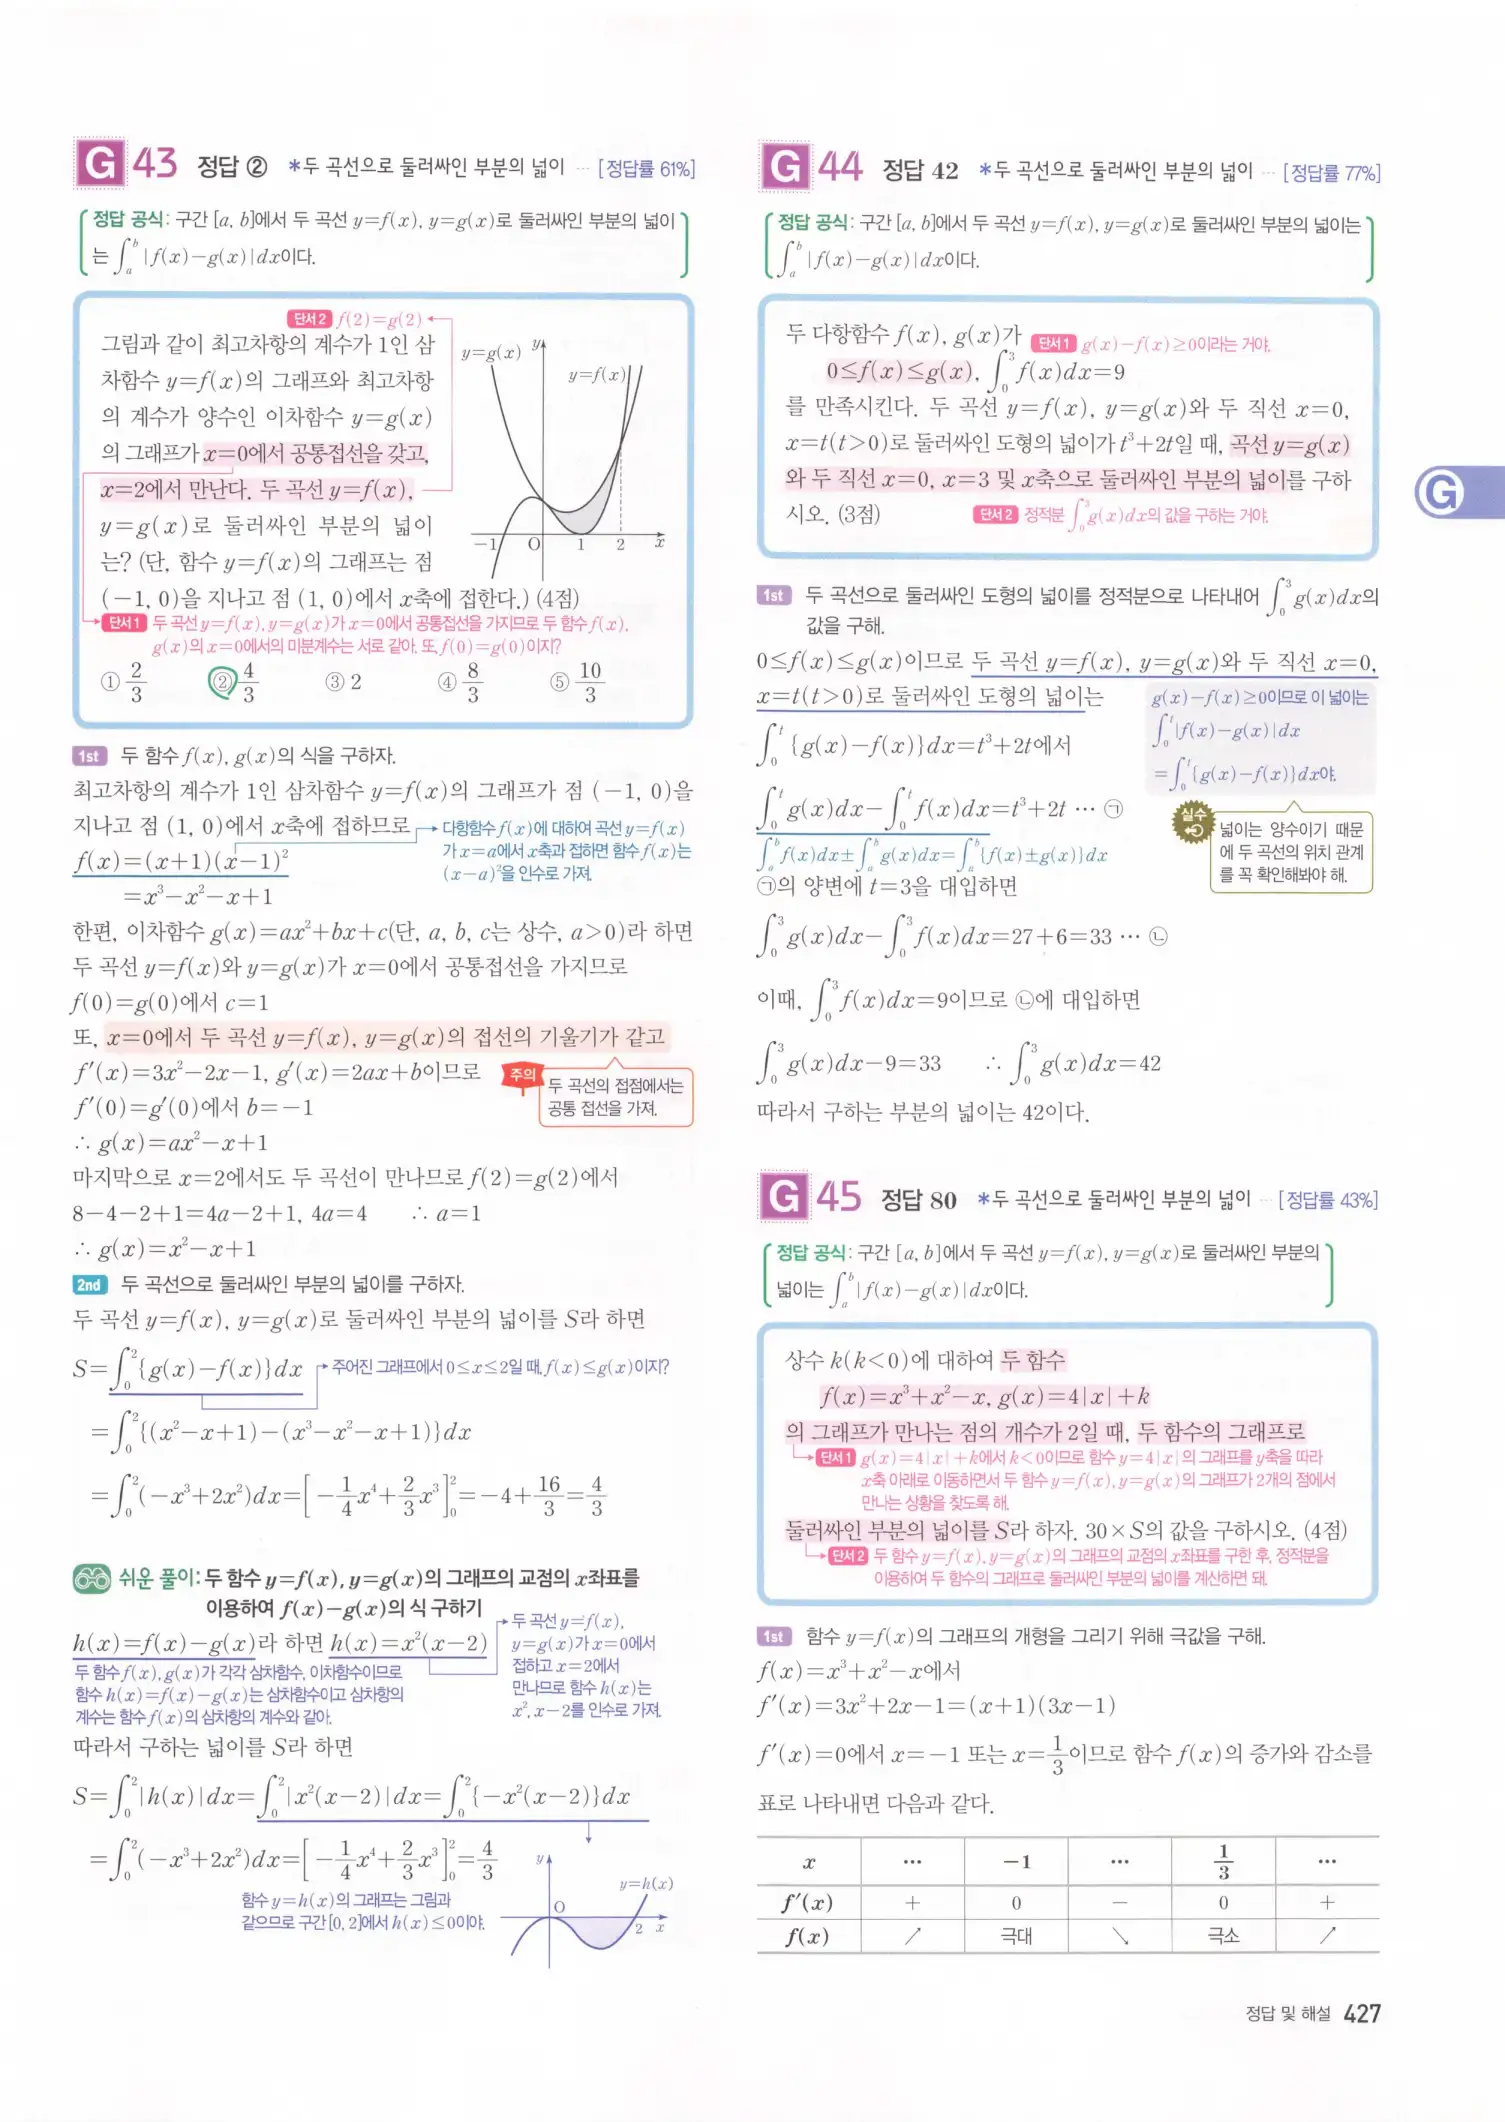 G 43 정답 ② *두 곡선으로 둘러싸인 부분의 넓이 ··· [정답률 61%]
정답 공식: 구간 [a, b]에서 두 곡선 y=f(x), y=g(x)로 둘러싸인 부분의 넓이
는 ∫ₐᵇ |f(x)−g(x)|dx이다.
단서2 f(2)=g(2)
그림과 같이 최고차항의 계수가 1인 삼
차함수 y=f(x)의 그래프와 최고차항
의 계수가 양수인 이차함수 y=g(x)
의 그래프가 x=0에서 공통접선을 갖고,
x=2에서 만난다. 두 곡선 y=f(x),
y=g(x)로 둘러싸인 부분의 넓이
는? (단, 함수 y=f(x)의 그래프는 점
(−1, 0)을 지나고 점 (1, 0)에서 x축에 접한다.) (4점)
y=g(x) y
y=f(x)
−1 O 1 2 x
단서1 두 곡선 y=f(x), y=g(x)가 x=0에서 공통접선을 가지므로 두 함수 f(x),
g(x)의 x=0에서의 미분계수는 서로 같아. 또, f(0)=g(0)이지?
① 2/3 ② 4/3 ③ 2 ④ 8/3 ⑤ 10/3
1st 두 함수 f(x), g(x)의 식을 구하자.
최고차항의 계수가 1인 삼차함수 y=f(x)의 그래프가 점 (−1, 0)을
지나고 점 (1, 0)에서 x축에 접하므로
f(x)=(x+1)(x−1)²
=x³−x²−x+1
다항함수 f(x)에 대하여 곡선 y=f(x)
가 x=a에서 x축과 접하면 함수 f(x)는
(x−a)²을 인수로 가져.
한편, 이차함수 g(x)=ax²+bx+c(단, a, b, c는 상수, a>0)라 하면
두 곡선 y=f(x)와 y=g(x)가 x=0에서 공통접선을 가지므로
f(0)=g(0)에서 c=1
또, x=0에서 두 곡선 y=f(x), y=g(x)의 접선의 기울기가 같고
f′(x)=3x²−2x−1, g′(x)=2ax+b이므로
f′(0)=g′(0)에서 b=−1
주의 두 곡선의 접점에서는
공통 접선을 가져.
∴ g(x)=ax²−x+1
마지막으로 x=2에서도 두 곡선이 만나므로 f(2)=g(2)에서
8−4−2+1=4a−2+1, 4a=4 ∴ a=1
∴ g(x)=x²−x+1
2nd 두 곡선으로 둘러싸인 부분의 넓이를 구하자.
두 곡선 y=f(x), y=g(x)로 둘러싸인 부분의 넓이를 S라 하면
S=∫₀²{g(x)−f(x)}dx 주어진 그래프에서 0≤x≤2일 때, f(x)≤g(x)이지?
=∫₀²{(x²−x+1)−(x³−x²−x+1)}dx
=∫₀²(−x³+2x²)dx=[−1/4x⁴+2/3x³]₀²=−4+16/3=4/3
쉬운 풀이: 두 함수 y=f(x), y=g(x)의 그래프의 교점의 x좌표를
이용하여 f(x)−g(x)의 식 구하기
h(x)=f(x)−g(x)라 하면 h(x)=x²(x−2)
두 함수 f(x), g(x)가 각각 삼차함수, 이차함수이므로
함수 h(x)=f(x)−g(x)는 삼차함수이고 삼차항의
계수는 함수 f(x)의 삼차항의 계수와 같아.
두 곡선 y=f(x),
y=g(x)가 x=0에서
접하고 x=2에서
만나므로 함수 h(x)는
x², x−2를 인수로 가져.
따라서 구하는 넓이를 S라 하면
S=∫₀²|h(x)|dx=∫₀²|x²(x−2)|dx=∫₀²{−x²(x−2)}dx
=∫₀²(−x³+2x²)dx=[−1/4x⁴+2/3x³]₀²=4/3
함수 y=h(x)의 그래프는 그림과
같으므로 구간 [0, 2]에서 h(x)≤0이야.
y
y=h(x)
O 2 x
G 44 정답 42 *두 곡선으로 둘러싸인 부분의 넓이 ··· [정답률 77%]
정답 공식: 구간 [a, b]에서 두 곡선 y=f(x), y=g(x)로 둘러싸인 부분의 넓이는
∫ₐᵇ |f(x)−g(x)|dx이다.
두 다항함수 f(x), g(x)가 단서1 g(x)−f(x)≥0이라는 거야.
0≤f(x)≤g(x), ∫₀³ f(x)dx=9
를 만족시킨다. 두 곡선 y=f(x), y=g(x)와 두 직선 x=0,
x=t(t>0)로 둘러싸인 도형의 넓이가 t³+2t일 때, 곡선 y=g(x)
와 두 직선 x=0, x=3 및 x축으로 둘러싸인 부분의 넓이를 구하
시오. (3점) 단서2 정적분 ∫₀³ g(x)dx의 값을 구하는 거야.
G
1st 두 곡선으로 둘러싸인 도형의 넓이를 정적분으로 나타내어 ∫₀³ g(x)dx의
값을 구해.
0≤f(x)≤g(x)이므로 두 곡선 y=f(x), y=g(x)와 두 직선 x=0,
x=t(t>0)로 둘러싸인 도형의 넓이는
∫₀ᵗ {g(x)−f(x)}dx=t³+2t에서
g(x)−f(x)≥0이므로 이 넓이는
∫₀ᵗ|f(x)−g(x)|dx
=∫₀ᵗ{g(x)−f(x)}dx야.
∫₀ᵗ g(x)dx−∫₀ᵗ f(x)dx=t³+2t ··· ㉠
∫ₐᵇ f(x)dx±∫ₐᵇ g(x)dx=∫ₐᵇ{f(x)±g(x)}dx
실수 넓이는 양수이기 때문
에 두 곡선의 위치 관계
를 꼭 확인해봐야 해.
㉠의 양변에 t=3을 대입하면
∫₀³ g(x)dx−∫₀³ f(x)dx=27+6=33 ··· ㉡
이때, ∫₀³ f(x)dx=9이므로 ㉡에 대입하면
∫₀³ g(x)dx−9=33 ∴ ∫₀³ g(x)dx=42
따라서 구하는 부분의 넓이는 42이다.
G 45 정답 80 *두 곡선으로 둘러싸인 부분의 넓이 ··· [정답률 43%]
정답 공식: 구간 [a, b]에서 두 곡선 y=f(x), y=g(x)로 둘러싸인 부분의
넓이는 ∫ₐᵇ |f(x)−g(x)|dx이다.
상수 k(k<0)에 대하여 두 함수
f(x)=x³+x²−x, g(x)=4|x|+k
의 그래프가 만나는 점의 개수가 2일 때, 두 함수의 그래프로
단서1 g(x)=4|x|+k에서 k<0이므로 함수 y=4|x|의 그래프를 y축을 따라
x축 아래로 이동하면서 두 함수 y=f(x), y=g(x)의 그래프가 2개의 점에서
만나는 상황을 찾도록 해.
둘러싸인 부분의 넓이를 S라 하자. 30×S의 값을 구하시오. (4점)
단서2 두 함수 y=f(x), y=g(x)의 그래프의 교점의 x좌표를 구한 후, 정적분을
이용하여 두 함수의 그래프로 둘러싸인 부분의 넓이를 계산하면 돼.
1st 함수 y=f(x)의 그래프의 개형을 그리기 위해 극값을 구해.
f(x)=x³+x²−x에서
f′(x)=3x²+2x−1=(x+1)(3x−1)
f′(x)=0에서 x=−1 또는 x=1/3이므로 함수 f(x)의 증가와 감소를
표로 나타내면 다음과 같다.
x ··· −1 ··· 1/3 ···
f′(x) + 0 − 0 +
f(x) ↗ 극대 ↘ 극소 ↗
정답 및 해설 427